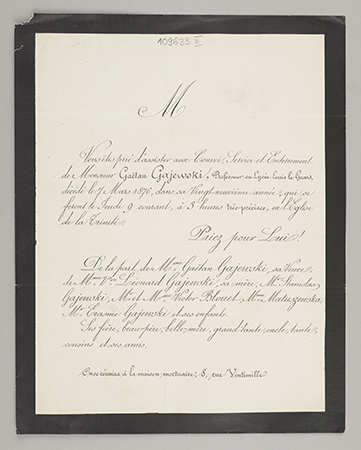 109633 II
M
Vous êtes prié d'assister aux Convoi, Service et Enterrement
de Monsieur Gaëtan Gajewski, Professeur au Lycée Louis le Grand,
décédé le 7 Mars 1876, dans sa Vingt-neuvième année; qui se
feront le Jeudi 9 courant, à 3 heures très-précises, en l'Eglise
de la Trinité.
Priez pour Lui!
De la part de Mme Gaëtan Gajewski, sa Veuve,
de Mme Vve Léonard Gajewski, sa mère, Mr Stanislas
Gajewski, Mr et Mme Victor Blouet, Mme Matuszewska,
Mr Erasme Gajewski et ses enfants.
Ses frère, beau-père, belle-mère, grand'tante, oncle, tante,
cousins et ses amis.
On se réunira à la maison mortuaire, 8, rue Vintimille